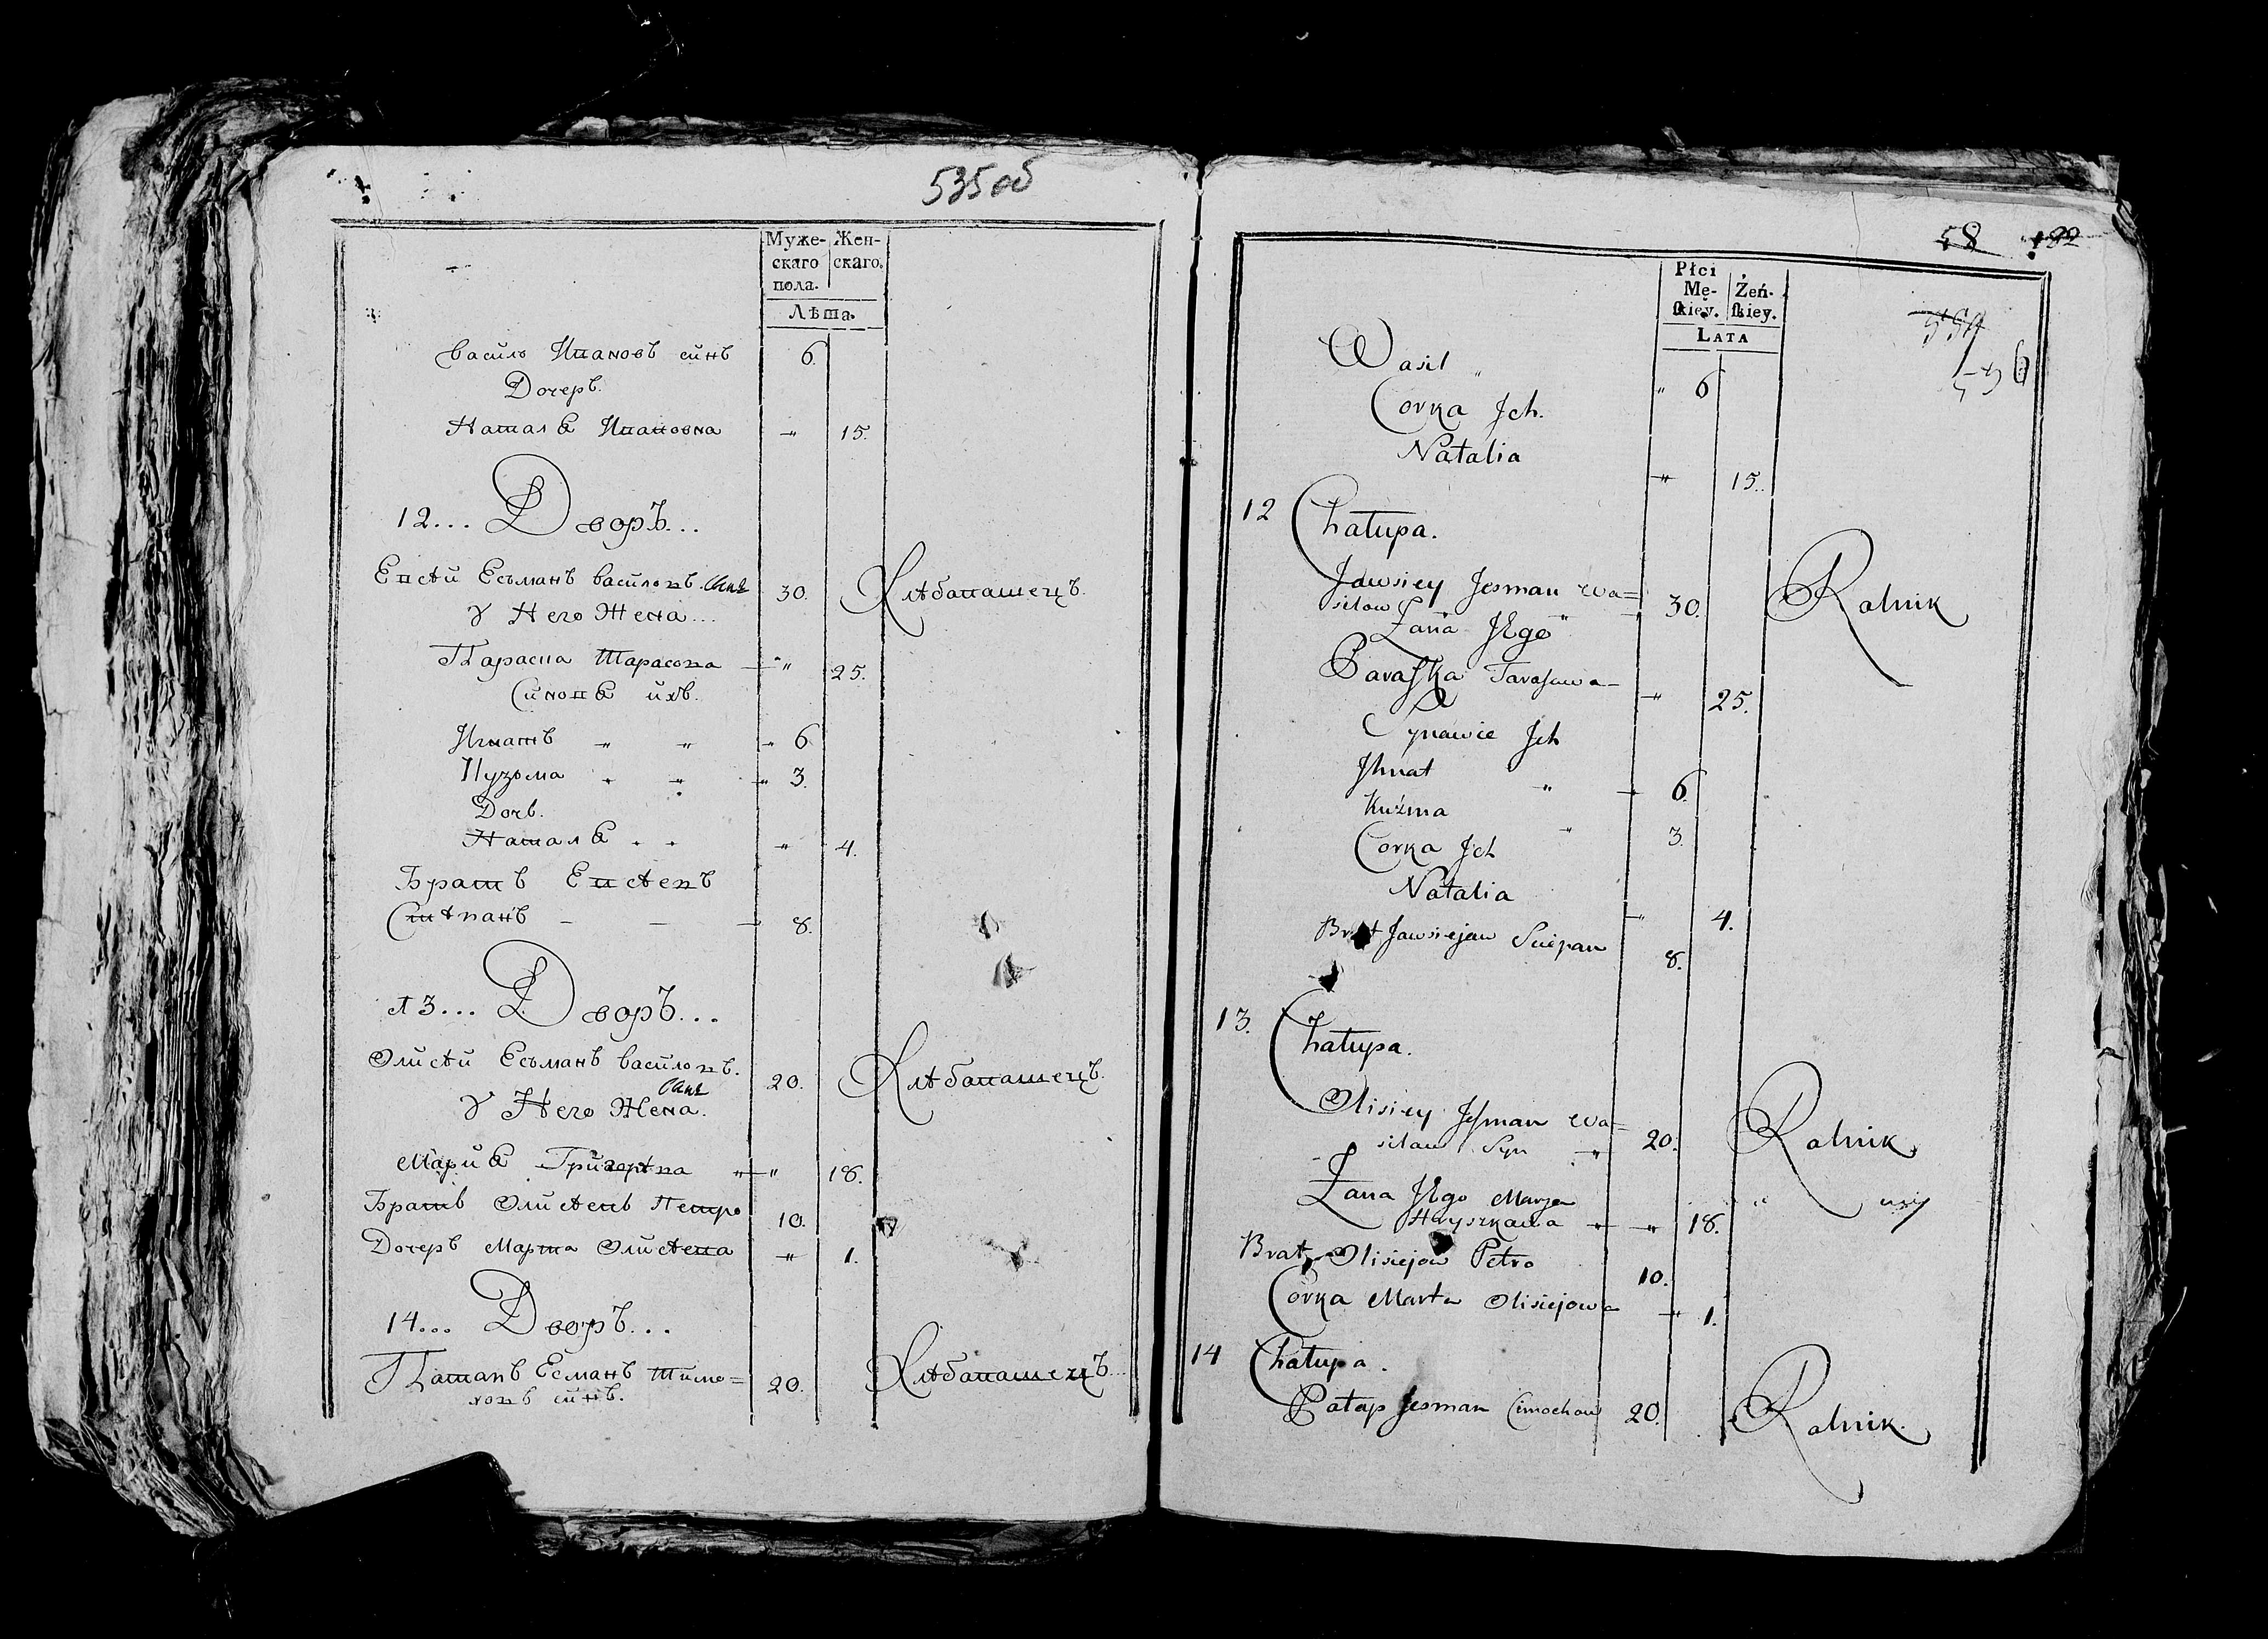 535 об
Муже-
скаго
пола.
Жен-
скаго.
Лѣта.
Василь Ивановъ синъ 6.
Дочеръ.
Наталѣ Ивановна - " 15.
12... Дворъ...
Евсѣй Есьманъ Василовъ Синъ 30. Хлѣбапашецъ.
У Него Жена...
Параска Тарасова " 25.
Синовѣ ихъ.
Игнатъ " " " 6
Кузьма " " " 3.
Дочь.
Наталѣ " " " 4.
Братъ Евсѣевъ
Стѣпанъ - - - 8.
13... Дворъ...
Олисѣй Есьманъ Василовъ. 20. Хлѣбапашецъ.
Синъ
У Него Жена.
Мариѣ Григорѣва " " 18.
Братъ Олисѣевъ Петро 10.
Дочеръ Марта Олисѣева " 1.
14... Дворъ...
Патапъ Есманъ Тимо= 20. Хлѣбапашецъ...
ховъ синъ.
58 122
Płci
Mę-
ſkiey.
Żeń-
ſkiey.
LATA
Wasil " " 6
Corka Jch.
Natalia " 15.
12 Chałupa.
Jawsiey Jesman Wa= 30. Rolnik
silow "
Zana JEgo
Paraſka Taraſawa " 25.
Synawie Jch
Jhnat " 6.
Kuźma " 3.
Corka Jch
Natalia " 4.
Brat Jawsiejaw Sciepan 8.
13. Chałupa.
Olisiey Jeſman Wa= 20. Rolnik
silaw Syn "
Zana JEgo Marya
Hryszkawa " " 18.
Brat Olisiejow Petro 10.
Corka Marta Olisiejowa " 1.
14 Chałupa.
Patap Jesman Cimochow 20. Rolnik.